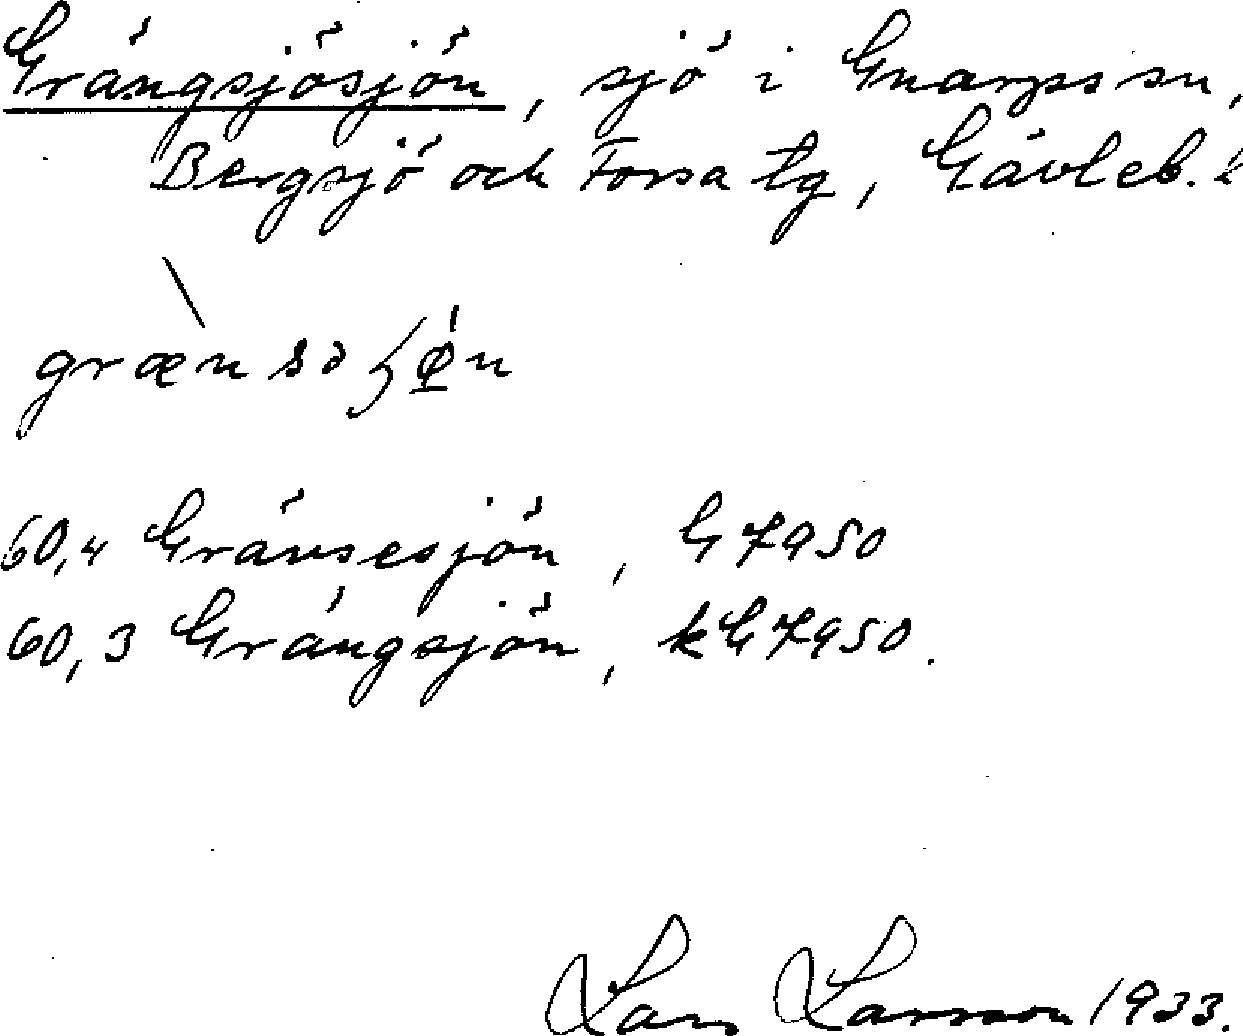 Grängsjösjön, sjö i Gnarps sn,
Bergsjö och Forsa tg, Gävleb. l
grænsəʃǿ̱n
60,4 Gränsesjön, G7950
60,3 Grängsjön, kG7950.
Lars Larsson 1933.